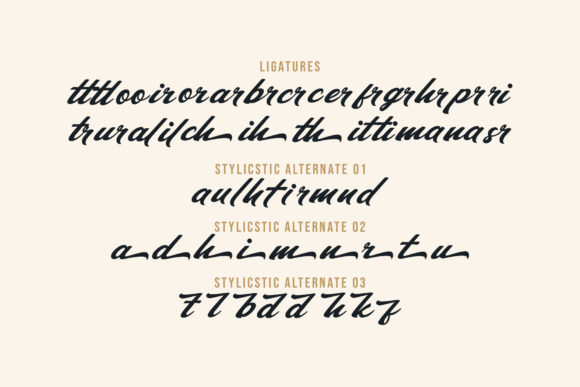 LIGATURES
ttttlooirorarbrcrcerfrgrhrprri
truralilch ih th ittimanasr
STYLICSTIC ALTERNATE 01
aulhtirmnd
STYLICSTIC ALTERNATE 02
a d h i m n r t u
STYLICSTIC ALTERNATE 03